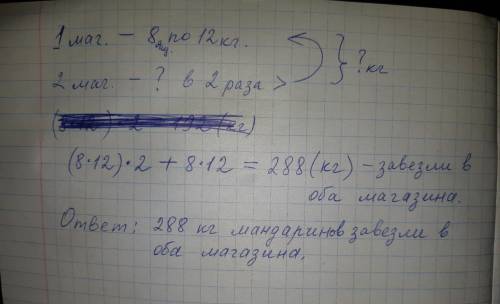 1 маг. – 8 ящ. по 12 кг.
2 маг. – ? в 2 раза > } ? кг
(8·12)·2 + 8·12 = 288 (кг) – завезли в
оба магазина.
Ответ: 288 кг мандаринов завезли в
оба магазина.